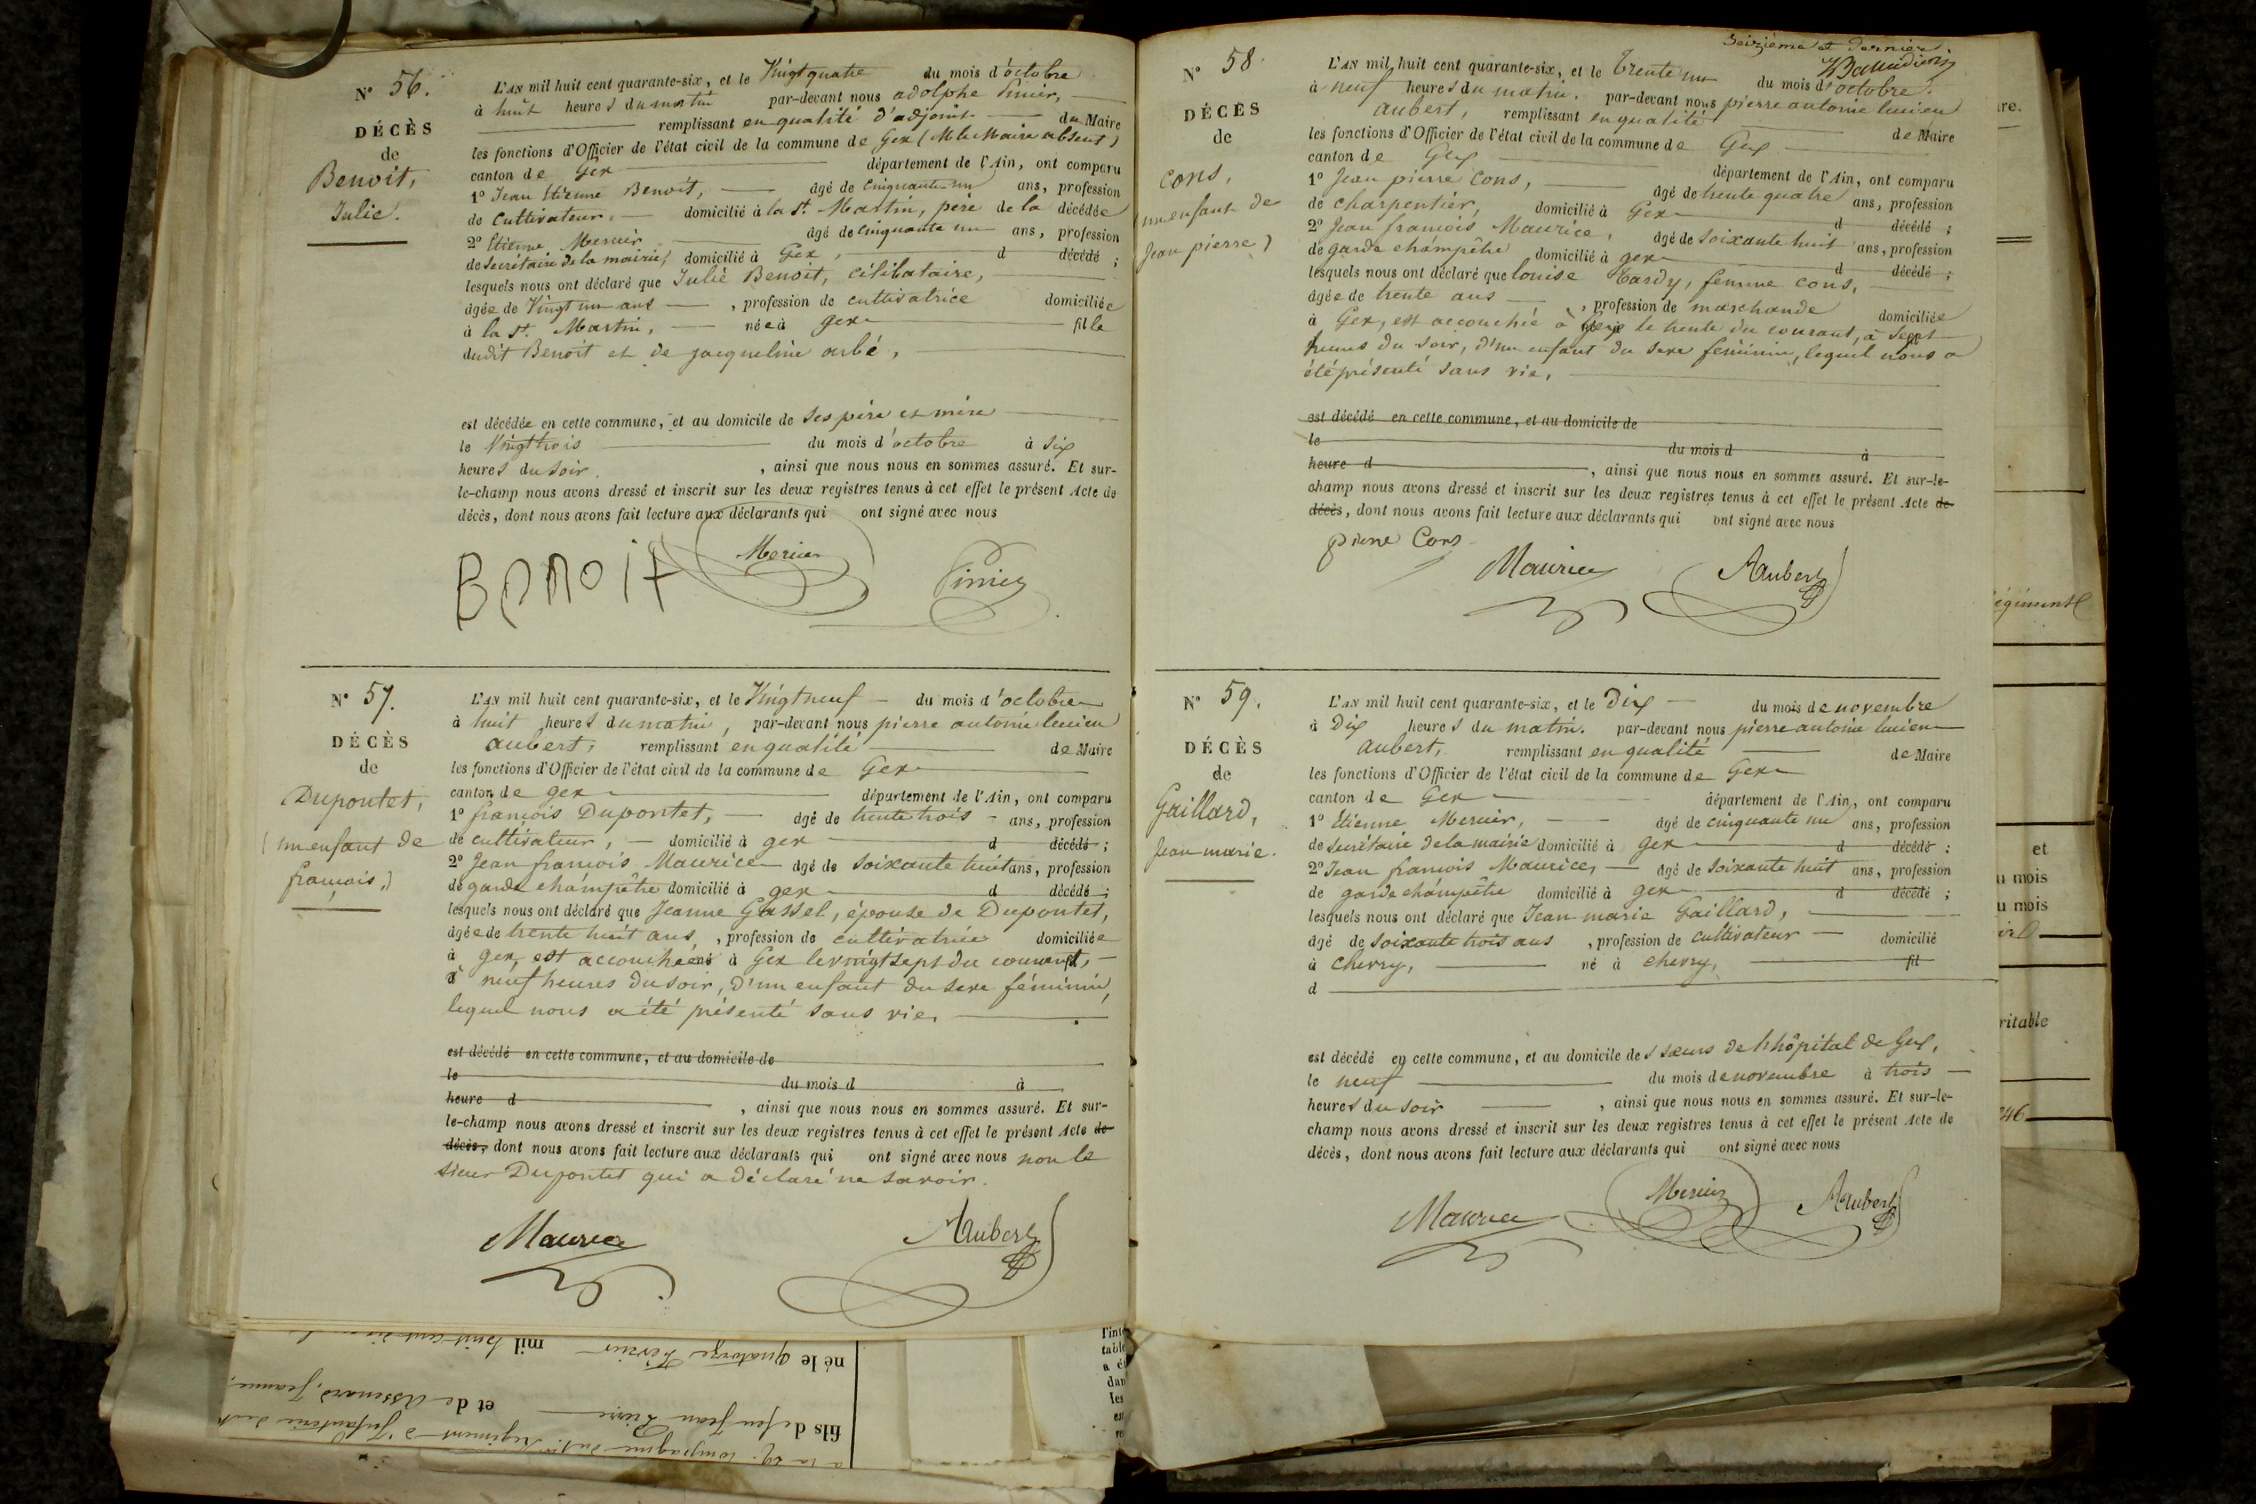 N° 56.
DÉCÈS
de
Benoit,
Julie.
L'AN mil huit cent quarante-six, et le Vingt quatre du mois d'octobre
à huit heures du matin par-devant nous adolphe
remplissant en qualité d'adjoint du Maire
les fonctions d'Officier de l'état civil de la commune de Gex (M. le Maire absent)
canton de Gex département de l'Ain, ont comparu
1° Jean Etienne Benoit, âgé de cinquante un ans, profession
de cultivateur, domicilié à la St. Martin, père de la décédée
2° Etienne Mercier âgé de cinquante un ans, profession
de secrétaire de la mairie, domicilié à Gex, d décédé ;
lesquels nous ont déclaré que Julie Benoit, célibataire,
âgée de Vingt un ans , profession de cultivatrice domiciliée
à la St. Martin, née à gex fille
dudit Benoit et de jacqueline
est décédée en cette commune, et au domicile de ses père et mère
le Vingt trois du mois d'octobre à six
heures du soir. , ainsi que nous nous en sommes assuré. Et sur-
le-champ nous avons dressé et inscrit sur les deux registres tenus à cet effet le présent Acte de
décès, dont nous avons fait lecture aux déclarants qui ont signé avec nous
BENOIT Mercier
N° 57.
DÉCÈS
de
Dupontet,
(un enfant de
françois,)
L'AN mil huit cent quarante-six, et le Vingt neuf du mois d'octobre
à huit heures du matin, par-devant nous pierre antoine lucien
aubert, remplissant en qualité de Maire
les fonctions d'Officier de l'état civil de la commune de Gex
canton de gex département de l'Ain, ont comparu
1° françois Dupontet, âgé de trente trois ans, profession
de cultivateur, domicilié à gex d décédé ;
2° Jean françois Maurice âgé de soixante huit ans, profession
de garde champêtre domicilié à gex d décédé ;
lesquels nous ont déclaré que Jeanne Gassel, épouse de Dupontet,
âgée de trente huit ans , profession de cultivatrice domiciliée
à gex, est accouchée à Gex le vingt sept du courant,
à neuf heures du soir, d'un enfant du sexe féminin,
lequel nous a été présenté sans vie.
est décédé en cette commune, et au domicile de
le du mois d à
heure d , ainsi que nous nous en sommes assuré. Et sur-
le-champ nous avons dressé et inscrit sur les deux registres tenus à cet effet le présent Acte de
décès, dont nous avons fait lecture aux déclarants qui ont signé avec nous non le
sieur Dupontet qui a déclaré ne savoir.
Maurice Aubert
seizième et dernier.
N° 58.
DÉCÈS
de
cons,
(un enfant de
Jean pierre)
L'AN mil huit cent quarante-six, et le trente un du mois d'octobre.
à neuf heures du matin. par-devant nous pierre antoine lucien
aubert, remplissant en qualité de Maire
les fonctions d'Officier de l'état civil de la commune de Gex
canton de Gex département de l'Ain, ont comparu
1° Jean pierre cons, âgé de trente quatre ans, profession
de charpentier, domicilié à Gex d décédé ;
2° Jean françois Maurice, âgé de soixante huit ans, profession
de garde champêtre domicilié à gex d décédé ;
lesquels nous ont déclaré que louise Tardy, femme cons,
âgée de trente ans , profession de marchande domiciliée
à Gex, est accouchée à Gex le trente du courant, à sept
heures du soir, d'un enfant du sexe féminin, lequel nous a
été présenté sans vie,
est décédé en cette commune, et au domicile de
le du mois d à
heure d , ainsi que nous nous en sommes assuré. Et sur-le-
champ nous avons dressé et inscrit sur les deux registres tenus à cet effet le présent Acte de
décès, dont nous avons fait lecture aux déclarants qui ont signé avec nous
pierre Cons Maurice Aubert
N° 59.
DÉCÈS
de
Gaillard,
Jean marie.
L'AN mil huit cent quarante-six, et le Dix du mois de novembre
à Dix heures du matin. par-devant nous pierre antoine lucien
aubert, remplissant en qualité de Maire
les fonctions d'Officier de l'état civil de la commune de Gex
canton de Gex département de l'Ain, ont comparu
1° Etienne Mercier, âgé de cinquante un ans, profession
de secrétaire de la mairie domicilié à gex d décédé :
2° Jean françois Maurice, âgé de soixante huit ans, profession
de garde champêtre domicilié à gex d décédé ;
lesquels nous ont déclaré que Jean marie Gaillard,
âgé de soixante trois ans , profession de cultivateur domicilié
à chevry, né à chevry, fil
d
est décédé en cette commune, et au domicile des sœurs de l'hôpital de Gex,
le neuf du mois de novembre à trois
heures du soir , ainsi que nous nous en sommes assuré. Et sur-le-
champ nous avons dressé et inscrit sur les deux registres tenus à cet effet le présent Acte de
décès, dont nous avons fait lecture aux déclarants qui ont signé avec nous
Maurice Mercier Aubert
né le quatorze Février mil huit cent
fils de feu Jean Pierre et de